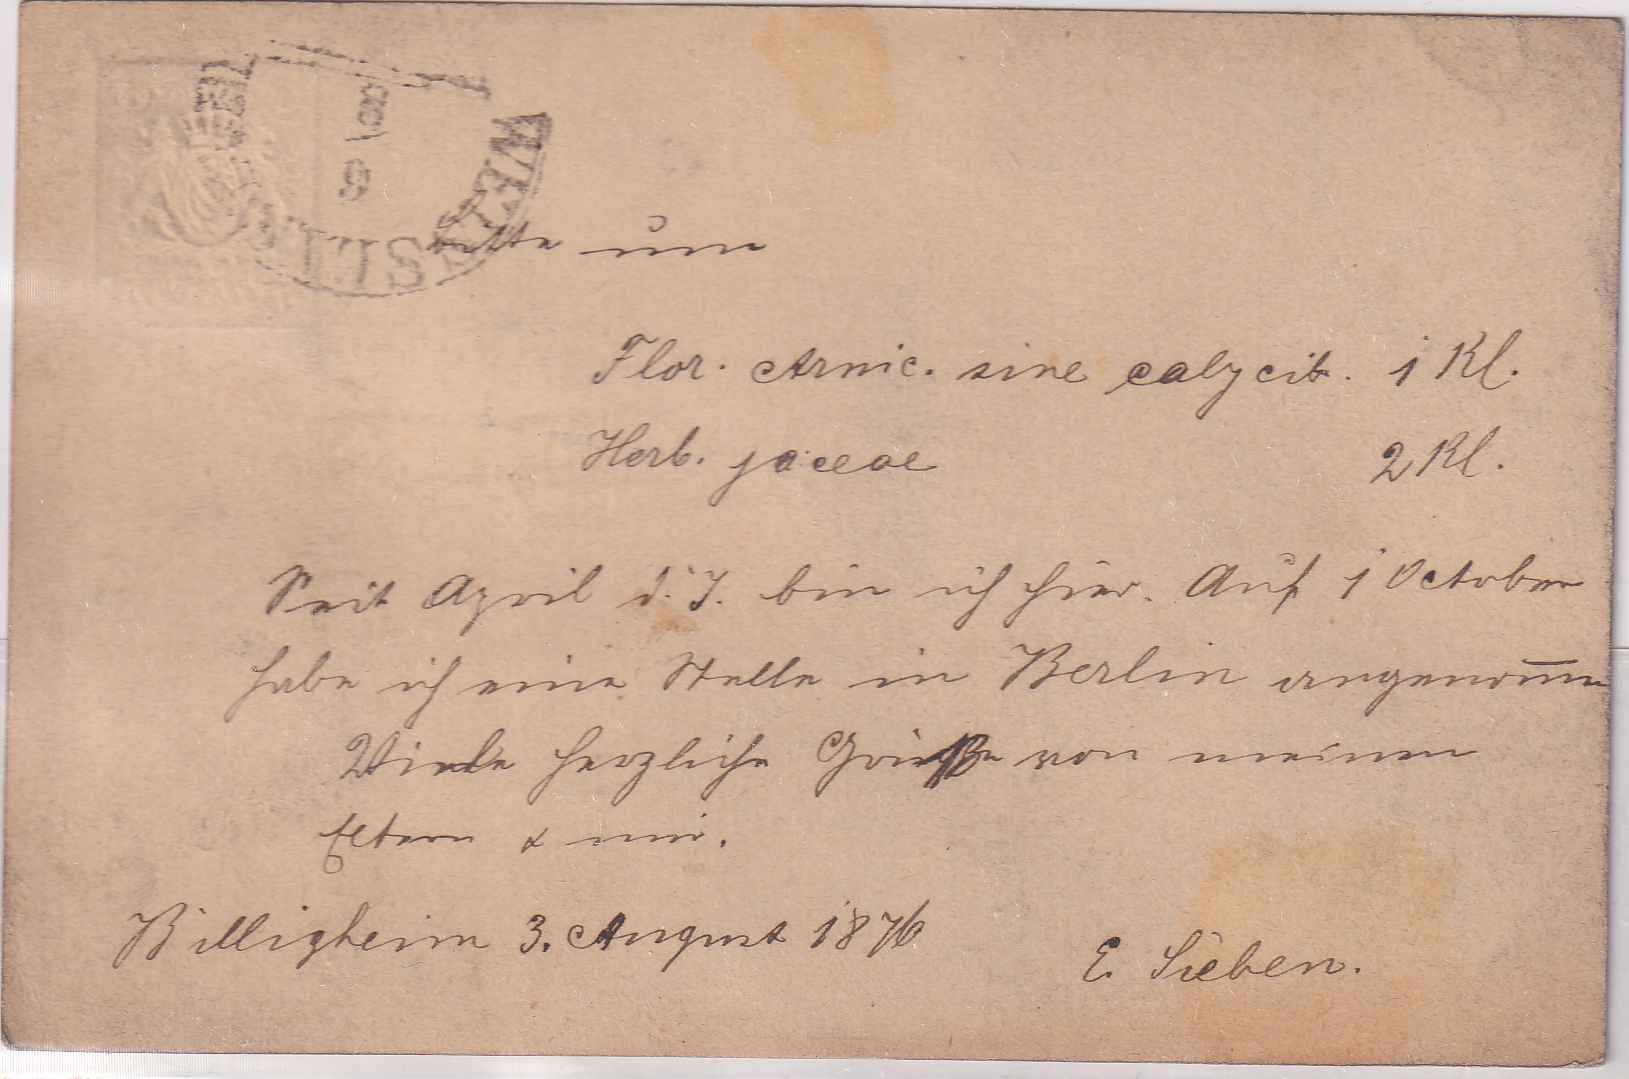 Bitte um
Flor. Arnic. sine calycib. 1 Kl.
Herb. jaceae 2 Kl.
Seit April d. J. bin ich hier. Auf 1 October
habe ich eine Stelle in Berlin angenom̅en
Viele herzliche Grüße von meinen
Eltern & mir.
Billigheim 3. August 1876
E. Sieben.